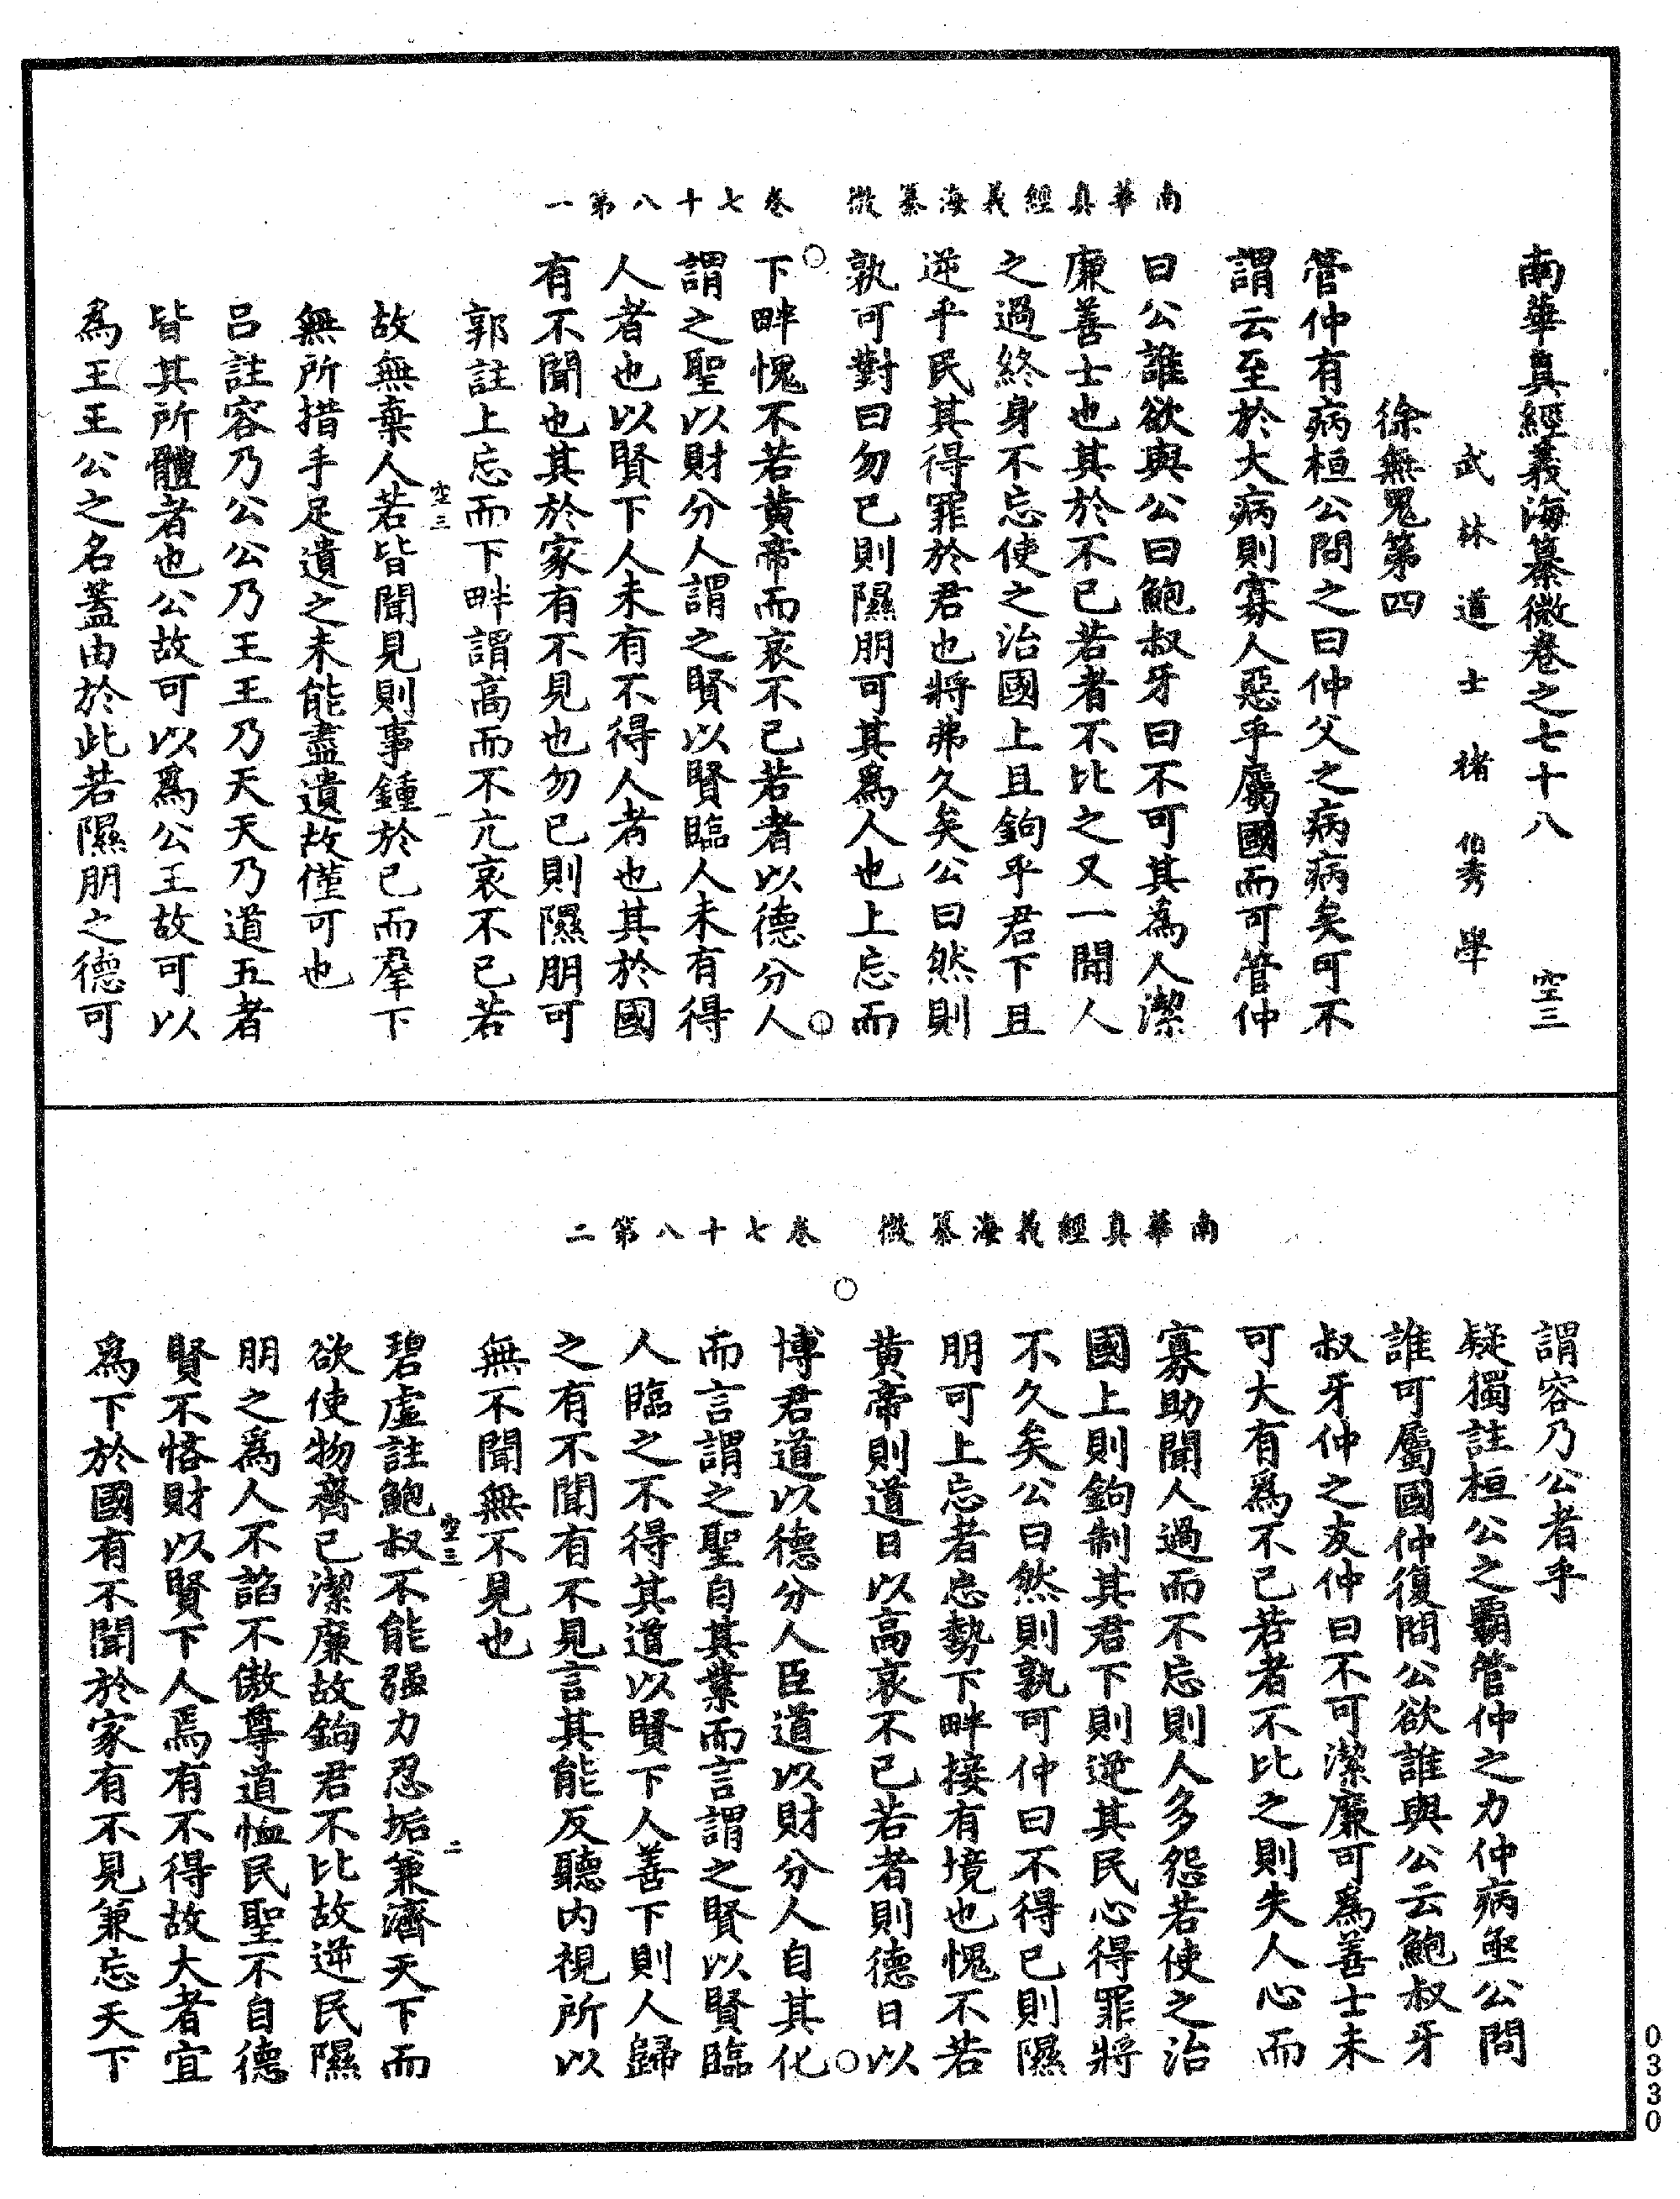 南華真經義海纂微　卷七十八第一
南華真經義海纂微卷之七十八　空三
武林道士褚伯秀學
徐無鬼第四
管仲有病桓公問之曰仲父之病病矣可不
謂云至於大病則寡人惡乎屬國而可管仲
曰公誰欲與公曰鮑叔牙曰不可其為人潔
廉善士也其於不已若者不比之又一聞人
之過終身不忘使之治國上且鉤乎君下且
逆乎民其得罪於君也將弗久矣公曰然則
孰可對曰勿已則隰朋可其為人也上忘而
下畔愧不若黃帝而哀不已若者以德分人
謂之聖以財分人謂之賢以賢臨人未有得
人者也以賢下人未有不得人者也其於國
有不聞也其於家有不見也勿已則隰朋可
郭註上忘而下畔謂高而不亢哀不已若
空三　一
故無棄人若皆聞見則事鍾於已而羣下
無所措手足遺之未能盡遺故僅可也
呂註容乃公公乃王王乃天天乃道五者
皆其所體者也公故可以為公王故可以
為王王公之名蓋由於此若隰朋之德可
南華真經義海纂微　卷七十八第二
謂容乃公者乎
疑獨註桓公之霸管仲之力仲病亟公問
誰可屬國仲復問公欲誰與公云鮑叔牙
叔牙仲之友仲曰不可潔廉可為善士未
可大有為不已若者不比之則失人心而
寡助聞人過而不忘則人多怨若使之治
國上則鉤制其君下則逆其民心得罪將
不久矣公曰然則孰可仲曰不得已則隰
朋可上忘者忘勢下畔接有境也愧不若
黃帝則道日以高哀不已若者則德日以
博君道以德分人臣道以財分人自其化
而言謂之聖自其業而言謂之賢以賢臨
人臨之不得其道以賢下人善下則人歸
之有不聞有不見言其能反聽內視所以
無不聞無不見也
空三　二
碧虛註鮑叔不能强力忍垢兼濟天下而
欲使物齊已潔廉故鉤君不比故逆民隰
朋之為人不諂不傲尊道恤民聖不自德
賢不悋財以賢下人焉有不得故大者宜
為下於國有不聞於家有不見兼忘天下
0330